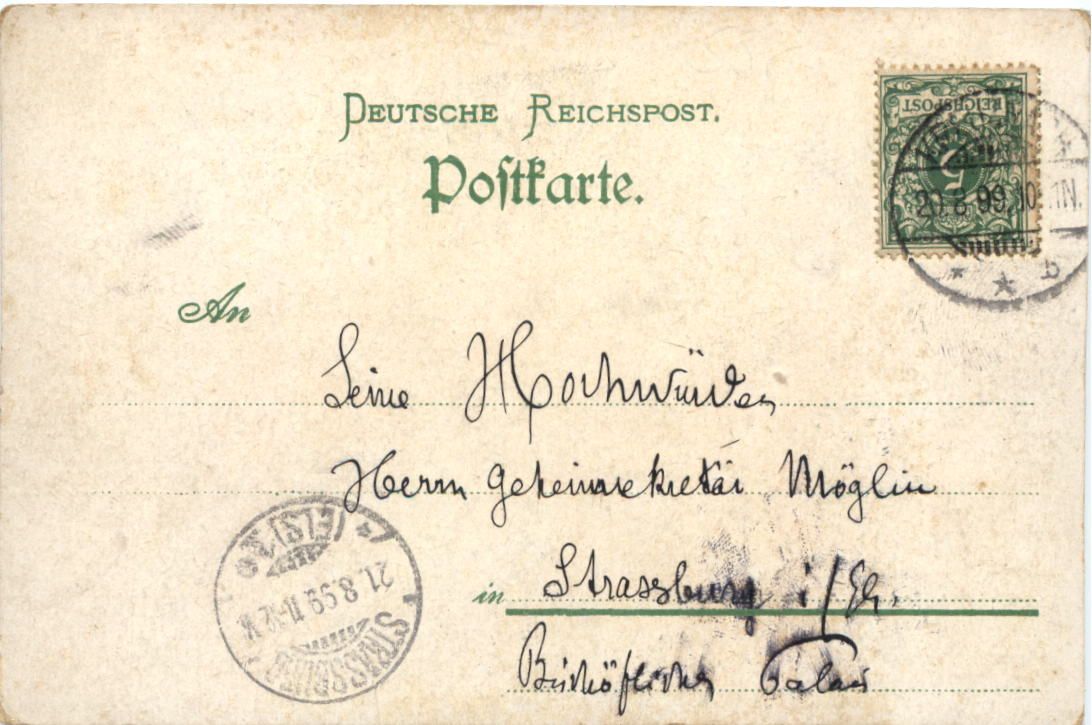 DEUTSCHE REICHSPOST.
Postkarte.
REICHSPOST
5
20.8.99.10
b
An
Seine Hochwürden
Herrn Geheimsekretär Möglin
in Straszburg i/Els.
Bischöfliches Palais
STRASSBURG
21.8.99.11-12 V.
(ELS) 1